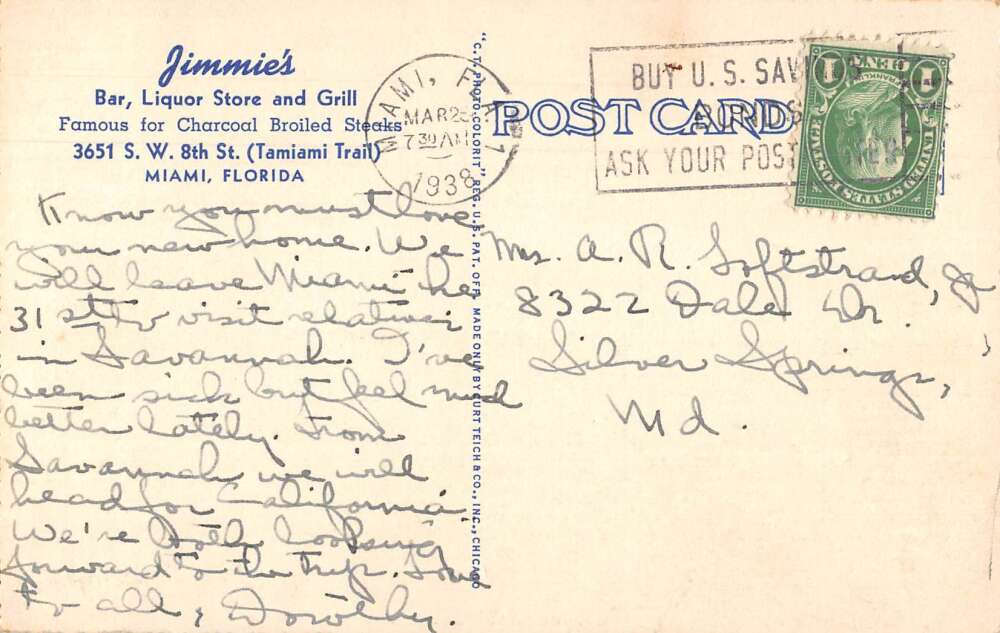 Jimmie's
Bar, Liquor Store and Grill
Famous for Charcoal Broiled Steaks
3651 S. W. 8th St. (Tamiami Trail)
MIAMI, FLORIDA
MIAMI, FLA.
MAR 25
7 30 AM
1938
BUY U.S. SAVINGS
BONDS
ASK YOUR POST
1 CENT 1
FRANKLIN
UNITED STATES POSTAGE
POST CARD
"C.T. PHOTO-COLORIT" REG. U.S. PAT. OFF. MADE ONLY BY CURT TEICH & CO., INC., CHICAGO
Know you must love
your new home. We
will leave Miami the
31 st to visit relatives
in Savannah. I've
been sick but feel much
better lately. From
Savannah we will
head for California.
We're both looking
forward to the trip. Love
to all, Dorothy.
Mrs. A. R. Softstrand, Jr
8322 Dale Dr.
Silver Springs,
Md.